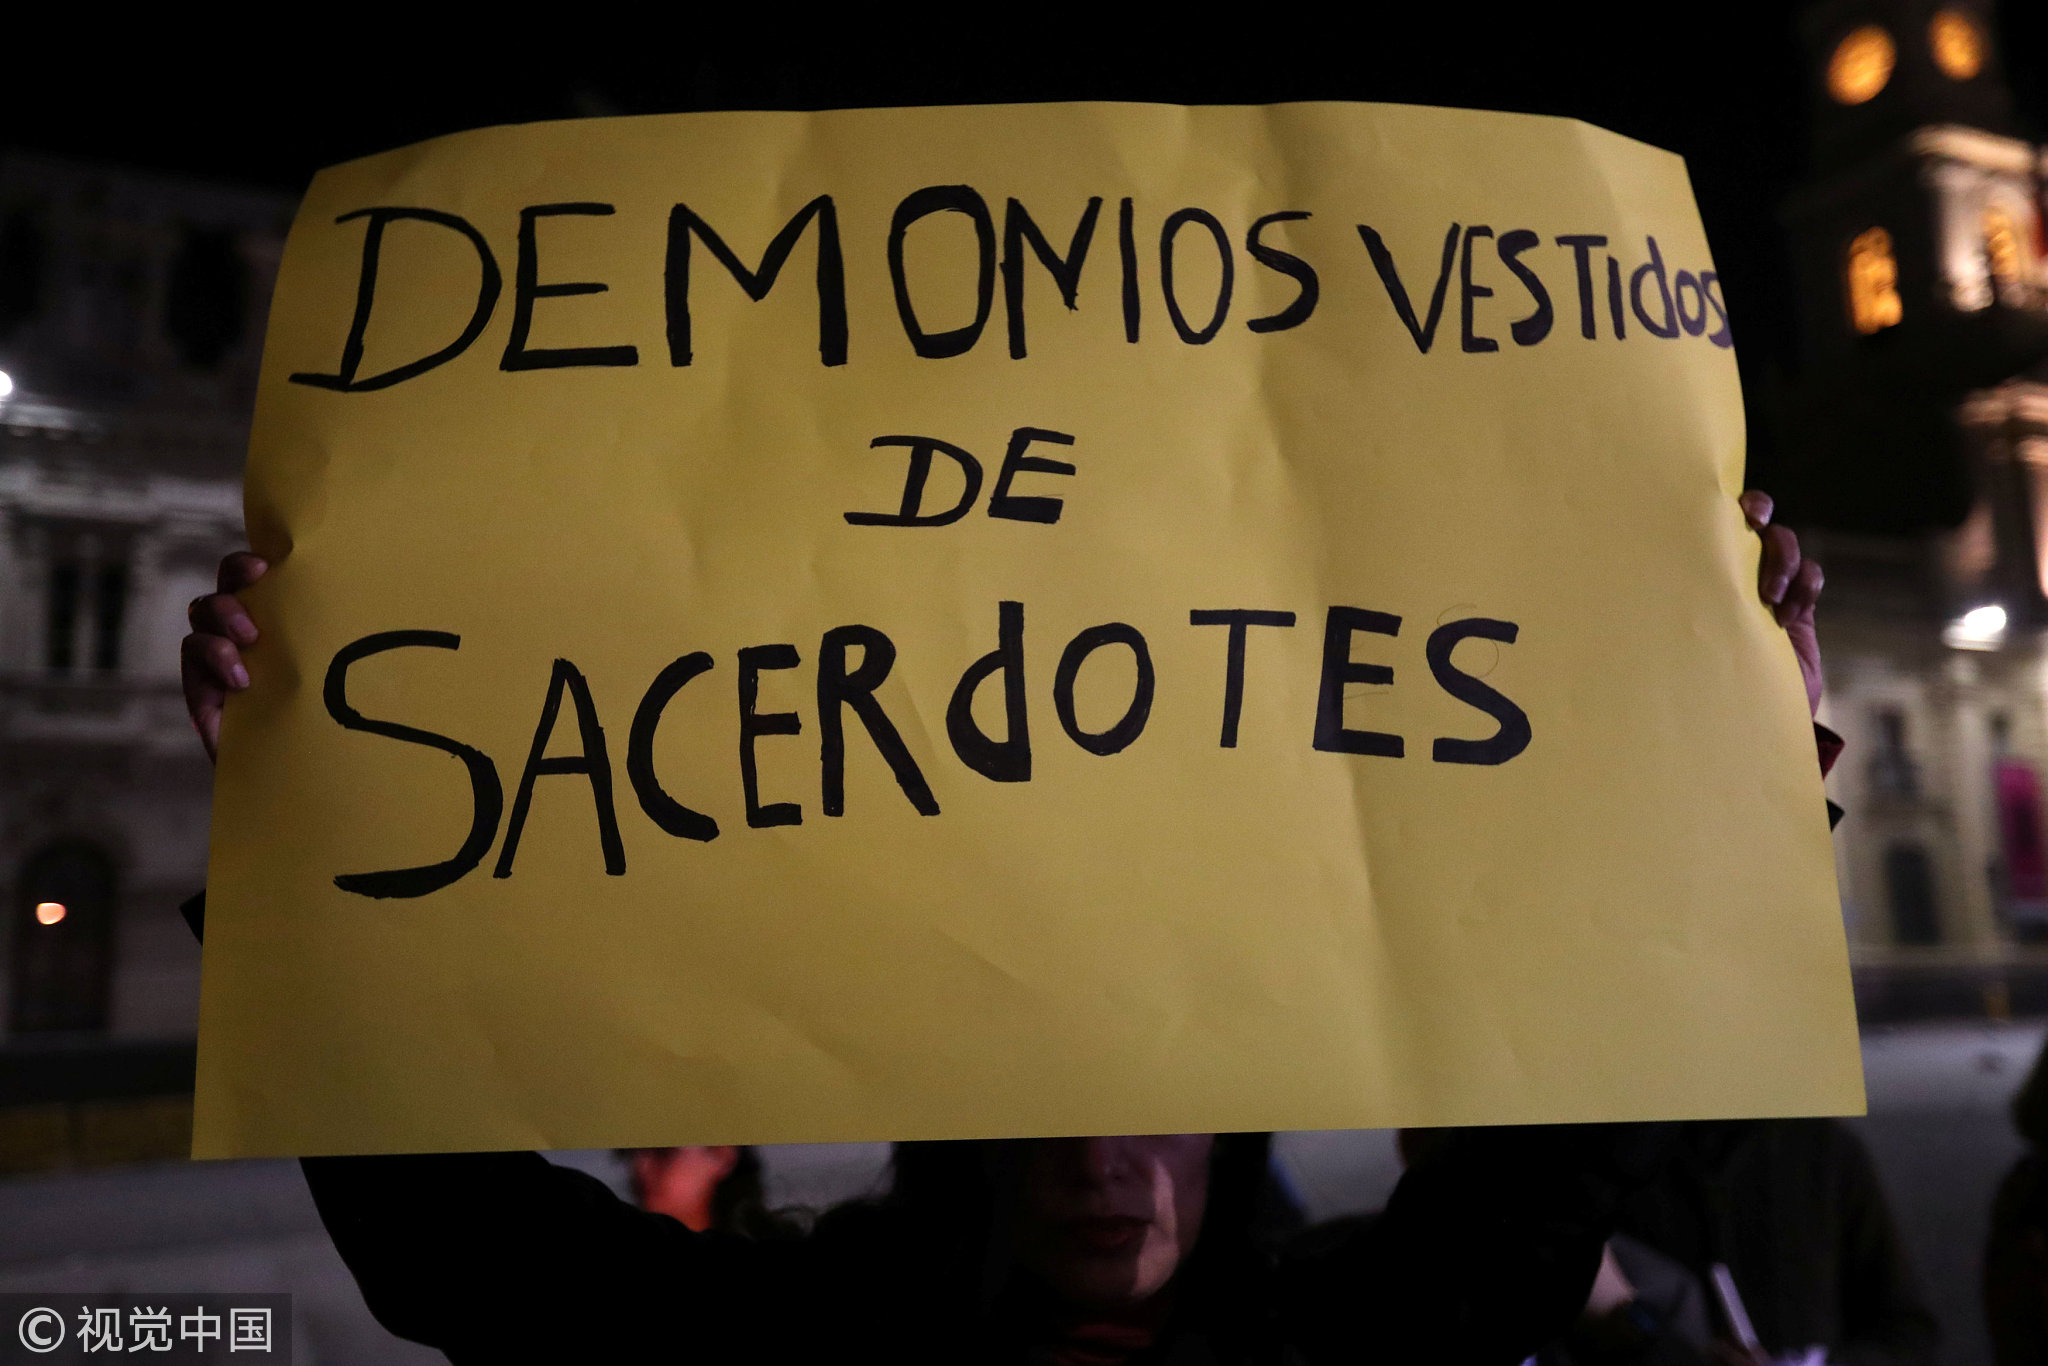 DEMONIOS VESTIdOS
DE
SACERdOTES
© 视觉中国